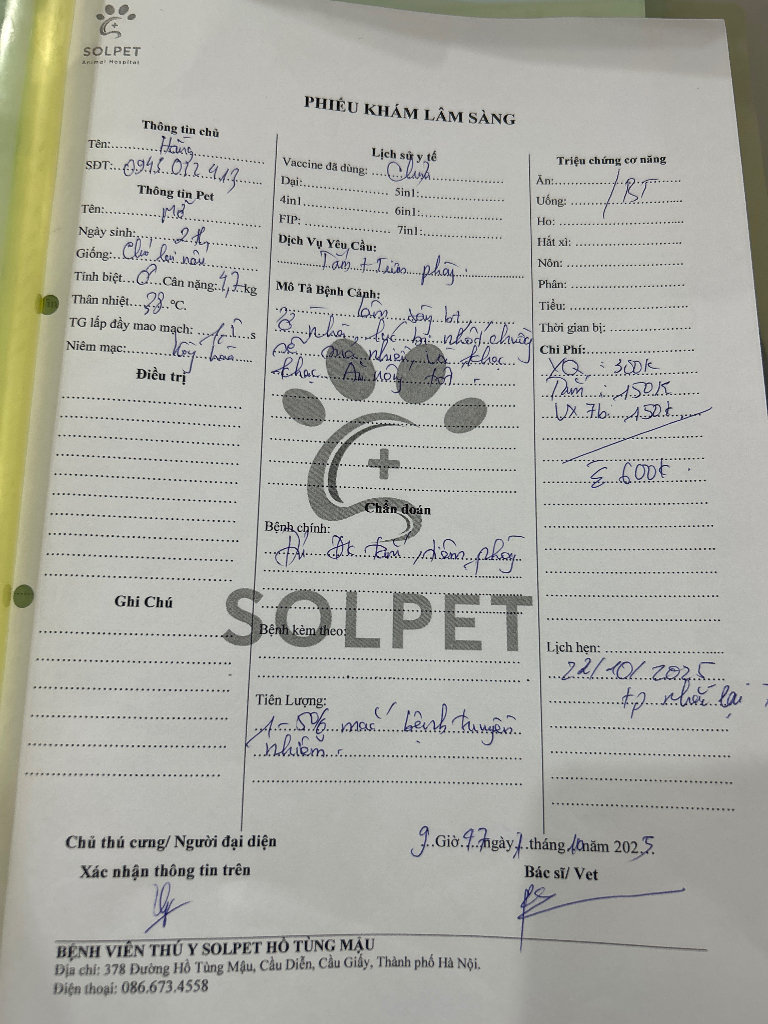 SOLPET
Animal Hospital
PHIẾU KHÁM LÂM SÀNG
Thông tin chủ
Tên: Hằng
SĐT: 0943.012.413
Thông tin Pet
Tên:
Ngày sinh: 2th
Giống: Chó lai nâu
Tính biệt ♂ Cân nặng: 4,7 kg
Thân nhiệt 38 °C.
TG lấp đầy mao mạch: s
Niêm mạc: hồng hào
Điều trị
Ghi Chú
Lịch sử y tế
Vaccine đã dùng: Chưa
Dại: 5in1:
4in1 6in1:
FIP: 7in1:
Dịch Vụ Yêu Cầu:
Tắm + Tiêm phòng
Mô Tả Bệnh Cảnh:
Lâm sàng bt,
Ở nhà, lúc bị nhốt chuồng
sẽ nhiều, và khạc
khạc. Ăn uống tốt.
Chẩn đoán
Bệnh chính:
Đủ đk tắm, tiêm phòng
SOLPET
Bệnh kèm theo:
Tiên Lượng:
1-5% mắc bệnh truyền
nhiễm.
Triệu chứng cơ năng
Ăn:
Uống: BT
Ho:
Hắt xì:
Nôn:
Phân:
Tiểu:
Thời gian bị:
Chi Phí:
XQ : 300k
Tắm : 150K
VX 7b 150k
Σ 600k
Lịch hẹn:
22/10/2025
tp nhắc lại
Chủ thú cưng/ Người đại diện
Xác nhận thông tin trên
9 Giờ ngày 1 tháng 10 năm 2025.
Bác sĩ/ Vet
BỆNH VIÊN THÚ Y SOLPET HỒ TÙNG MẬU
Địa chỉ: 378 Đường Hồ Tùng Mậu, Cầu Diễn, Cầu Giấy, Thành phố Hà Nội.
Điện thoại: 086.673.4558